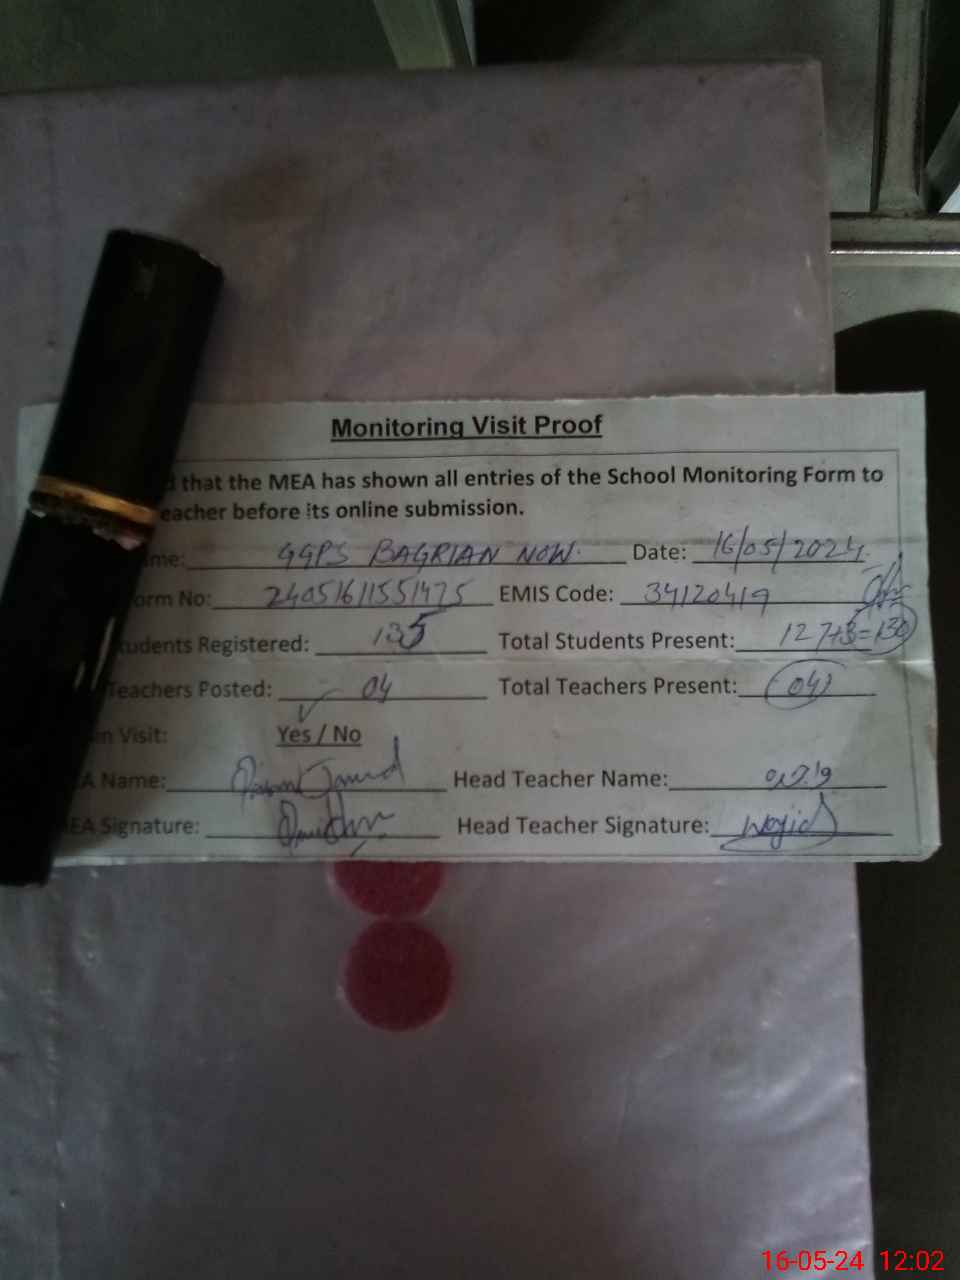 Monitoring Visit Proof
that the MEA has shown all entries of the School Monitoring Form to
eacher before its online submission.
me: GGPS BAGRIAN NOW. Date: 16/05/2024.
orm No: 24051611551475 EMIS Code: 34120419
udents Registered: 135 Total Students Present: 127+3=130
Teachers Posted: 04 Total Teachers Present: 04
in Visit: Yes / No
A Name: Head Teacher Name:
EA Signature: Head Teacher Signature: Wajid
16-05-24 12:02